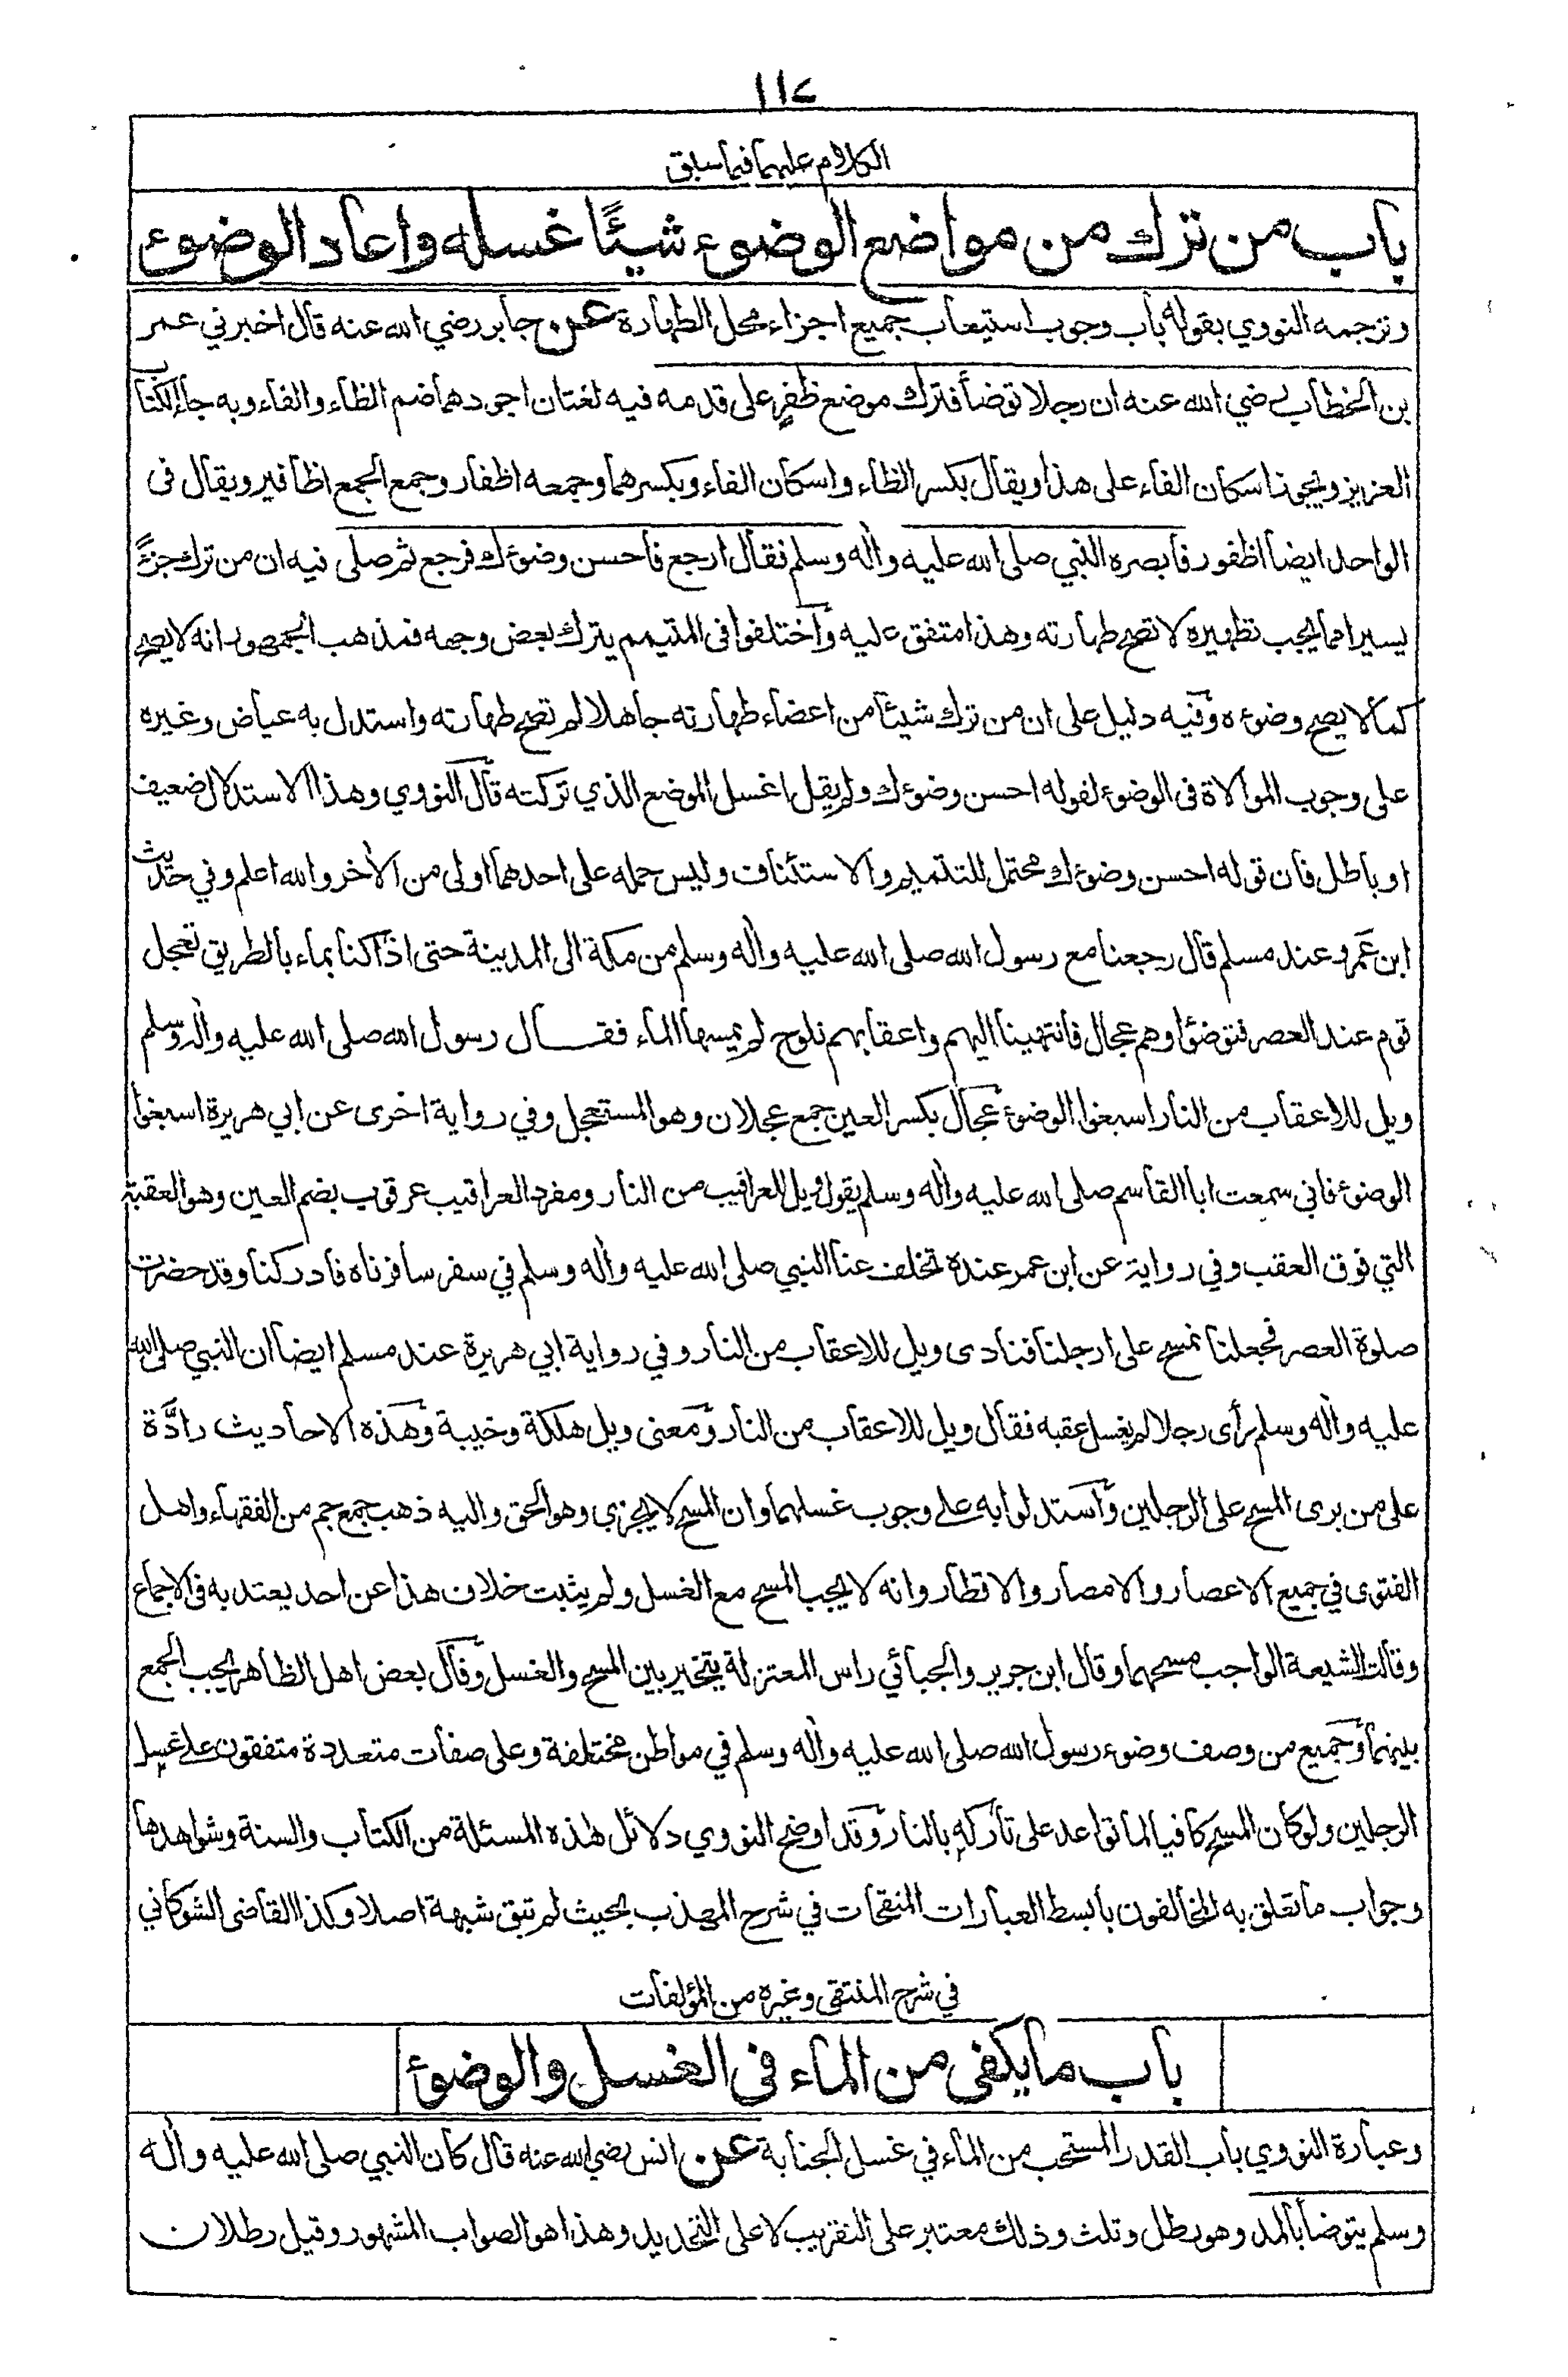 ١١٤
الكلام عليهما فيما سبق
باب من ترك من مواضع الوضوء شيئًا غسله واعاد الوضوء
وترجمه النووي بقوله باب وجوب استيعاب جميع اجزاء محل الطهارة عن جابر رضي الله عنه قال اخبرني عمر
بن الخطاب رضي الله عنه ان رجلا توضأ فترك موضع ظفر على قدمه فيه لغتان اجودهما ضم الظاء والفاء وبه جاء الكتاب
العزيز ويجوز اسكان الفاء على هذا ويقال بكسر الظاء واسكان الفاء وبكسرهما وجمعه اظفار وجمع الجمع اظافير ويقال فى
الواحد ايضا اظفور فابصره النبي صلى الله عليه واٰله وسلم فقال ارجع فاحسن وضوءك فرجع ثم صلى فيه ان من ترك جزءً
يسيرا مما يجب تطهيره لا تصح طهارته وهذا متفق عليه واختلفوا فى المتيمم يترك بعض وجهه فمذهب الجمهور انه لا يصح
كما لا يصح وضوءه وفيه دليل على ان من ترك شيئا من اعضاء طهارته جاهلا لم تصح طهارته واستدل به عياض وغيره
على وجوب الموالاة فى الوضوء لقوله احسن وضوءك ولم يقل اغسل الموضع الذي تركته قال النووي وهذا الاستدلال ضعيف
او باطل فان قوله احسن وضوءك محتمل للتتميم والاستئناف وليس حمله على احدهما اولى من الاٰخر والله اعلم وفي حديث
ابن عَمرو عند مسلم قال رجعنا مع رسول الله صلى الله عليه واٰله وسلم من مكة الى المدينة حتى اذا كنا بماء بالطريق تعجل
قوم عند العصر فتوضؤا وهم عجال فانتهينا اليهم واعقابهم تلوح لم يمسها الماء فقال رسول الله صلى الله عليه واٰله وسلم
ويل للاعقاب من النار اسبغوا الوضوء عجال بكسر العين جمع عجلان وهو المستعجل وفي رواية اخرى عن ابي هريرة اسبغوا
الوضوء فاني سمعت ابا القاسم صلى الله عليه واٰله وسلم يقول ويل للعراقيب من النار ومفرد العراقيب عرقوب بضم العين وهو العقبة
التي فوق العقب وفي رواية عن ابن عمر عنده تخلف عنا النبي صلى الله عليه واٰله وسلم في سفر سافرناه فادركنا وقد حضرت
صلوة العصر فجعلنا نمسح على ارجلنا فنادى ويل للاعقاب من النار وفي رواية ابي هريرة عند مسلم ايضا ان النبي صلى الله
عليه واٰله وسلم رأى رجلا لم يغسل عقبه فقال ويل للاعقاب من النار ومعنى ويل هلكة وخيبة وهذه الاحاديث رادَّة
على من يرى المسح على الرجلين واستدلوا به على وجوب غسلهما وان المسح لا يجزي وهو الحق واليه ذهب جمع جم من الفقهاء واهل
الفتوى في جميع الاعصار والامصار والاقطار وانه لا يجب المسح مع الغسل ولم يثبت خلاف هذا عن احد يعتد به فى الاجماع
وقالت الشيعة الواجب مسحهما وقال ابن جرير والجبائي راس المعتزلة يتخير بين المسح والغسل وقال بعض اهل الظاهر يجب الجمع
بينهما وجميع من وصف وضوء رسول الله صلى الله عليه واٰله وسلم في مواطن مختلفة وعلى صفات متعددة متفقون على غسل
الرجلين ولو كان المسح كافيا لما تواعد على تاركه بالنار وقد اوضح النووي دلائل هٰذه المسئلة من الكتاب والسنة وشواهدها
وجواب ما تعلق به المخالفون بابسط العبارات المنقحات في شرح المهذب بحيث لم تبق شبهة اصلا وكذا القاضى الشوكاني
في شرح المنتقى وغيره من المؤلفات
باب ما يكفى من الماء فى الغسل والوضوء
وعبارة النووي باب القدر المستحب من الماء في غسل الجنابة عن انس رضي الله عنه قال كان النبي صلى الله عليه واٰله
وسلم يتوضأ بالمد وهو رطل وثلث وذلك معتبر على التقريب لا على التحديد وهذا هو الصواب المشهور وقيل رطلان